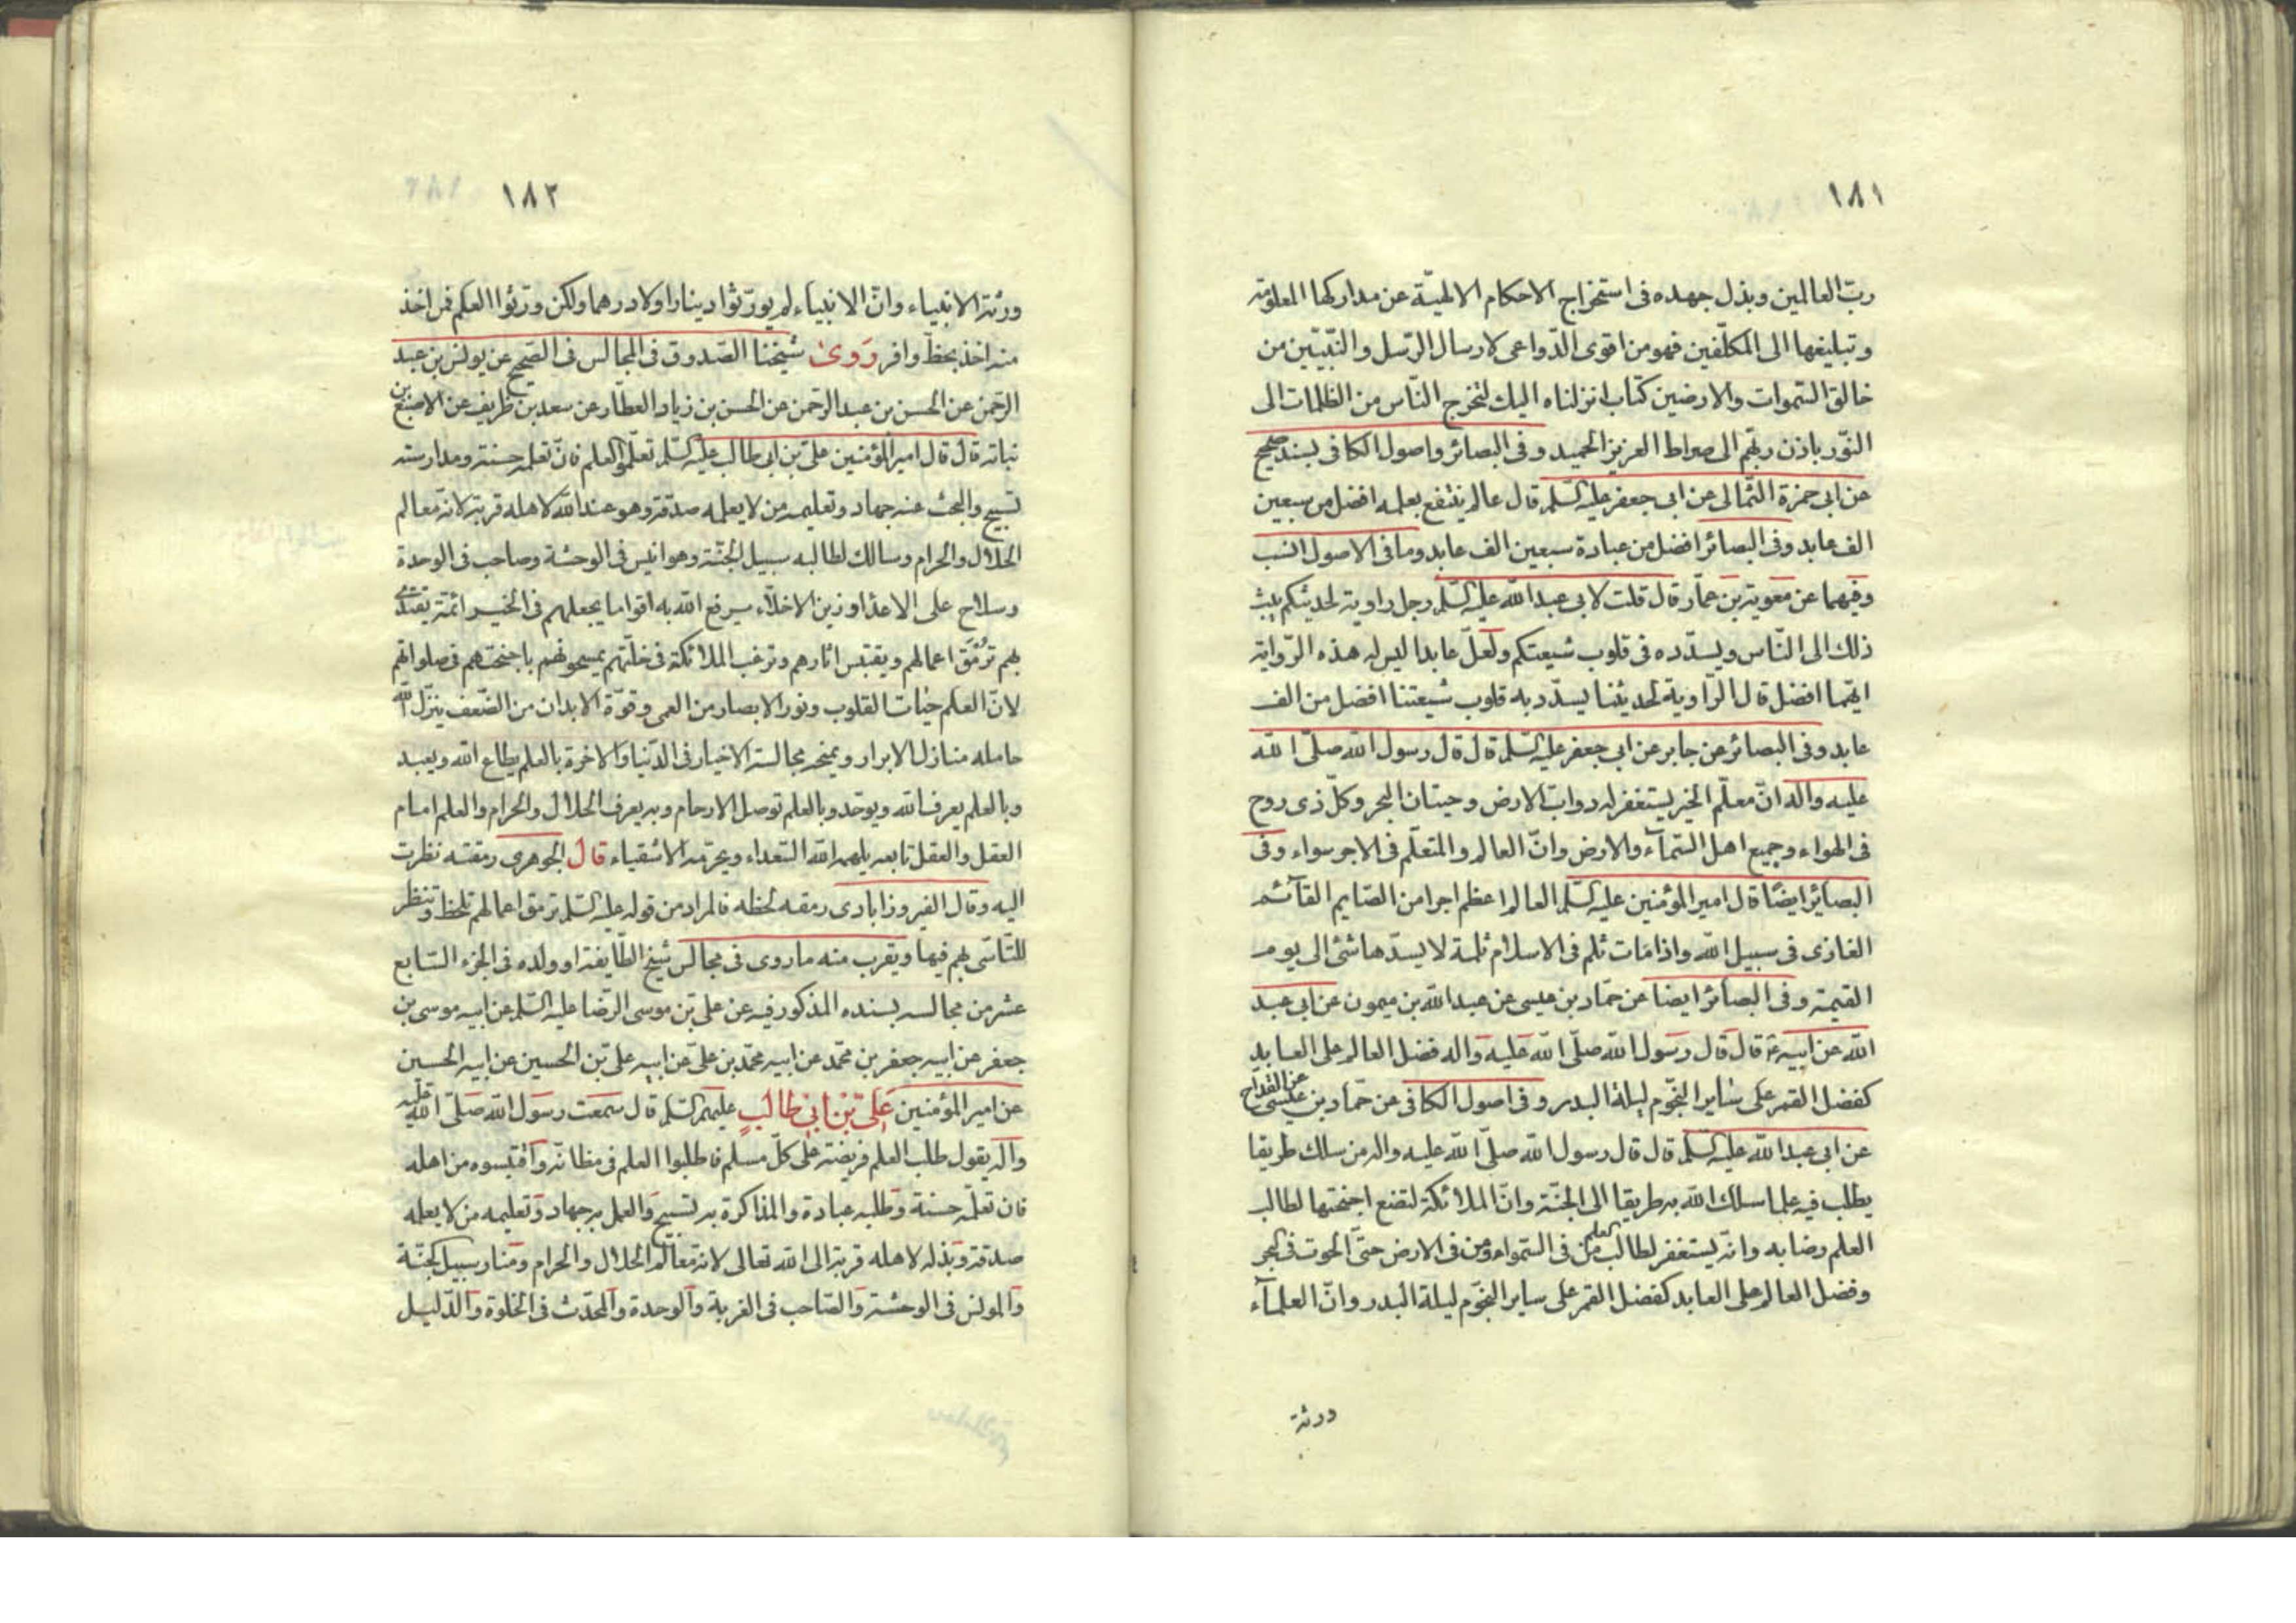 ١٨١
ربّ العالمين وبذل جهده فى استخراج الاحكام الالهيّة عن مداركها المعلومة
و تبليغها الى المكلّفين فهو من اقوى الدّواعى لارسال الرّسل والنّبيّين من
خالق السّموات والارضين كتاب انزلناه اليك لتخرج النّاس من الظلمات الى
النّور باذن ربّهم الى صراط العزيز الحميد وفى البصائر واصول الكافى بسند صحيح
عن ابى حمزة الثّمالى عن ابى جعفر عليه السّلم قال عالم ينتفع بعلمه افضل من سبعين
الف عابد وفى البصائر افضل من عبادة سبعين الف عابد وما فى الاصول انسب
وفيهما عن معوية بن عمّار قال قلت لابى عبد الله عليه السّلم رجل راوية لحديثكم يبث
ذلك الى النّاس ويسدّده فى قلوب شيعتكم ولعلّ عابدا ليس له هذه الرّواية
ايّهما افضل قال الرّاوية لحديثنا يسدّد به قلوب شيعتنا افضل من الف
عابد وفى البصائر عن جابر عن ابى جعفر عليه السّلم قال قال رسول الله صلّى الله
عليه واله انّ معلّم الخير يستغفر له دوابّ الارض وحيتان البحر وكلّ ذى روح
فى الهواء وجميع اهل السّمآء والارض وانّ العالم والمتعلّم فى الاجر سواء وفى
البصائر ايضًا قال امير المؤمنين عليه السّلم العالم اعظم اجرا من الصّايم القآئم
الغازى فى سبيل الله واذا مات ثلم فى الاسلام ثلمة لا يسدّها شئ الى يوم
القيمة وفى البصائر ايضا عن حمّاد بن عيسى عن عبد الله بن ميمون عن ابى عبد
الله عن ابيه ع قال قال رسول الله صلّى الله عليه واله فضل العالم على العابد
كفضل القمر على ساير النّجوم ليلة البدر وفى اصول الكافى عن حمّاد بن عيسى عن القدّاح
عن ابى عبد الله عليه السّلم قال قال رسول الله صلّى الله عليه واله من سلك طريقا
يطلب فيه علما سلك الله به طريقا الى الجنّة وانّ الملائكة لتضع اجنحتها لطالب
العلم رضا به وانّه يستغفر لطالب العلم من فى السّموات ومن فى الارض حتّى الحوت فى البحر
وفضل العالم على العابد كفضل القمر على ساير النّجوم ليلة البدر وانّ العلمآء
ورثة
١٨٢
ورثة الانبياء وانّ الانبياء لم يورّثوا دينارا ولا درهما ولكن ورّثوا العلم فمن اخذ
منه اخذ بحظّ وافر روى شيخنا الصّدوق فى المجالس فى الصّحيح عن يونس بن عبد
الرّحمن عن الحسن بن عبد الرّحمن عن الحسن بن زياد العطّار عن سعد بن ظريف عن الاصبغ بن
نباته قال قال امير المؤمنين علىّ بن ابى طالب عليه السّلم تعلّموا العلم فانّ تعلمه حسنة ومدارسته
تسبيح والبحث عنه جهاد وتعليمه من لا يعلمه صدقة وهو عند الله لاهله قربة لانّه معالم
الحلال والحرام وسالك لطالبه سبيل الجنّة وهو انيس فى الوحشة وصاحب فى الوحدة
وسلاح على الاعداء وزين الاخلّاء يرفع الله به اقواما يجعلهم فى الخير ائمّة يقتدى
بهم ترمّق اعمالهم ويقتبس اثارهم وترغب الملائكة فى خلّتهم يمسحونهم باجنحتهم فى صلواتهم
لانّ العلم حيات القلوب ونور الابصار من العمى وقوّة الابدان من الضّعف ينزّل الله
حامله منازل الابرار ويمنحه مجالسة الاخيار فى الدّنيا والاخرة بالعلم يطاع الله ويعبد
وبالعلم يعرف الله ويوحّد وبالعلم توصل الارحام وبه يعرف الحلال والحرام والعلم امام
العقل والعقل تابعه يلهمه الله السّعداء ويحرّمه الاشقياء قال الجوهرى رمقته نظرت
اليه وقال الفيروزابادى رمقه لحظه فالمراد من قوله عليه السّلم ترمق اعمالهم تلحظ وتنظر
للتّأسّى بهم فيها ويقرب منه ما روى فى مجالس شيخ الطّايفة او ولده فى الجزء السّابع
عشر من مجالسه بسنده المذكور فيه عن علىّ بن موسى الرّضا عليه السّلم عن ابيه موسى بن
جعفر عن ابيه جعفر بن محمّد عن ابيه محمّد بن علىّ عن ابيه علىّ بن الحسين عن ابيه الحسين
عن امير المؤمنين علىّ بن ابى طالب عليهم السّلم قال سمعت رسول الله صلّى الله عليه
واله يقول طلب العلم فريضة على كلّ مسلم فاطلبوا العلم فى مظانّه واقتبسوه من اهله
فان تعلّمه حسنة وطلبه عبادة والمذاكرة به تسبيح والعمل به جهاد وتعليمه من لا يعلمه
صدقة وبذله لاهله قربة الى الله تعالى لانه معالم الحلال والحرام ومنار سبيل الجنّة
والمونس فى الوحشة والصّاحب فى الغربة والوحدة والمحدّث فى الخلوة والدّليل